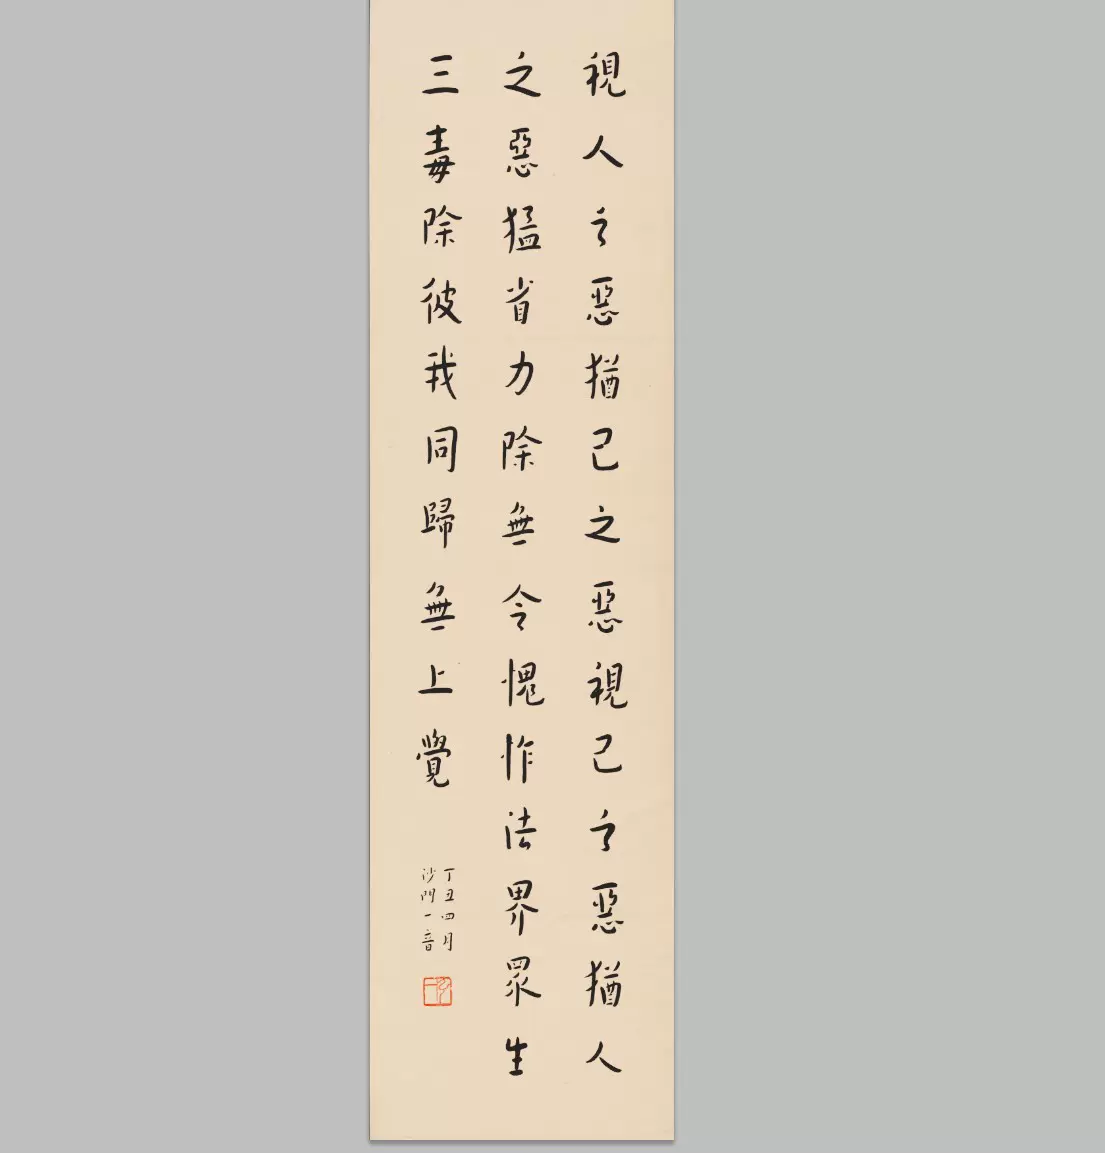 視人之惡猶己之惡視己之惡猶人
之惡猛省力除無令愧怍法界眾生
三毒除彼我同歸無上覺
丁丑四月
沙門一音